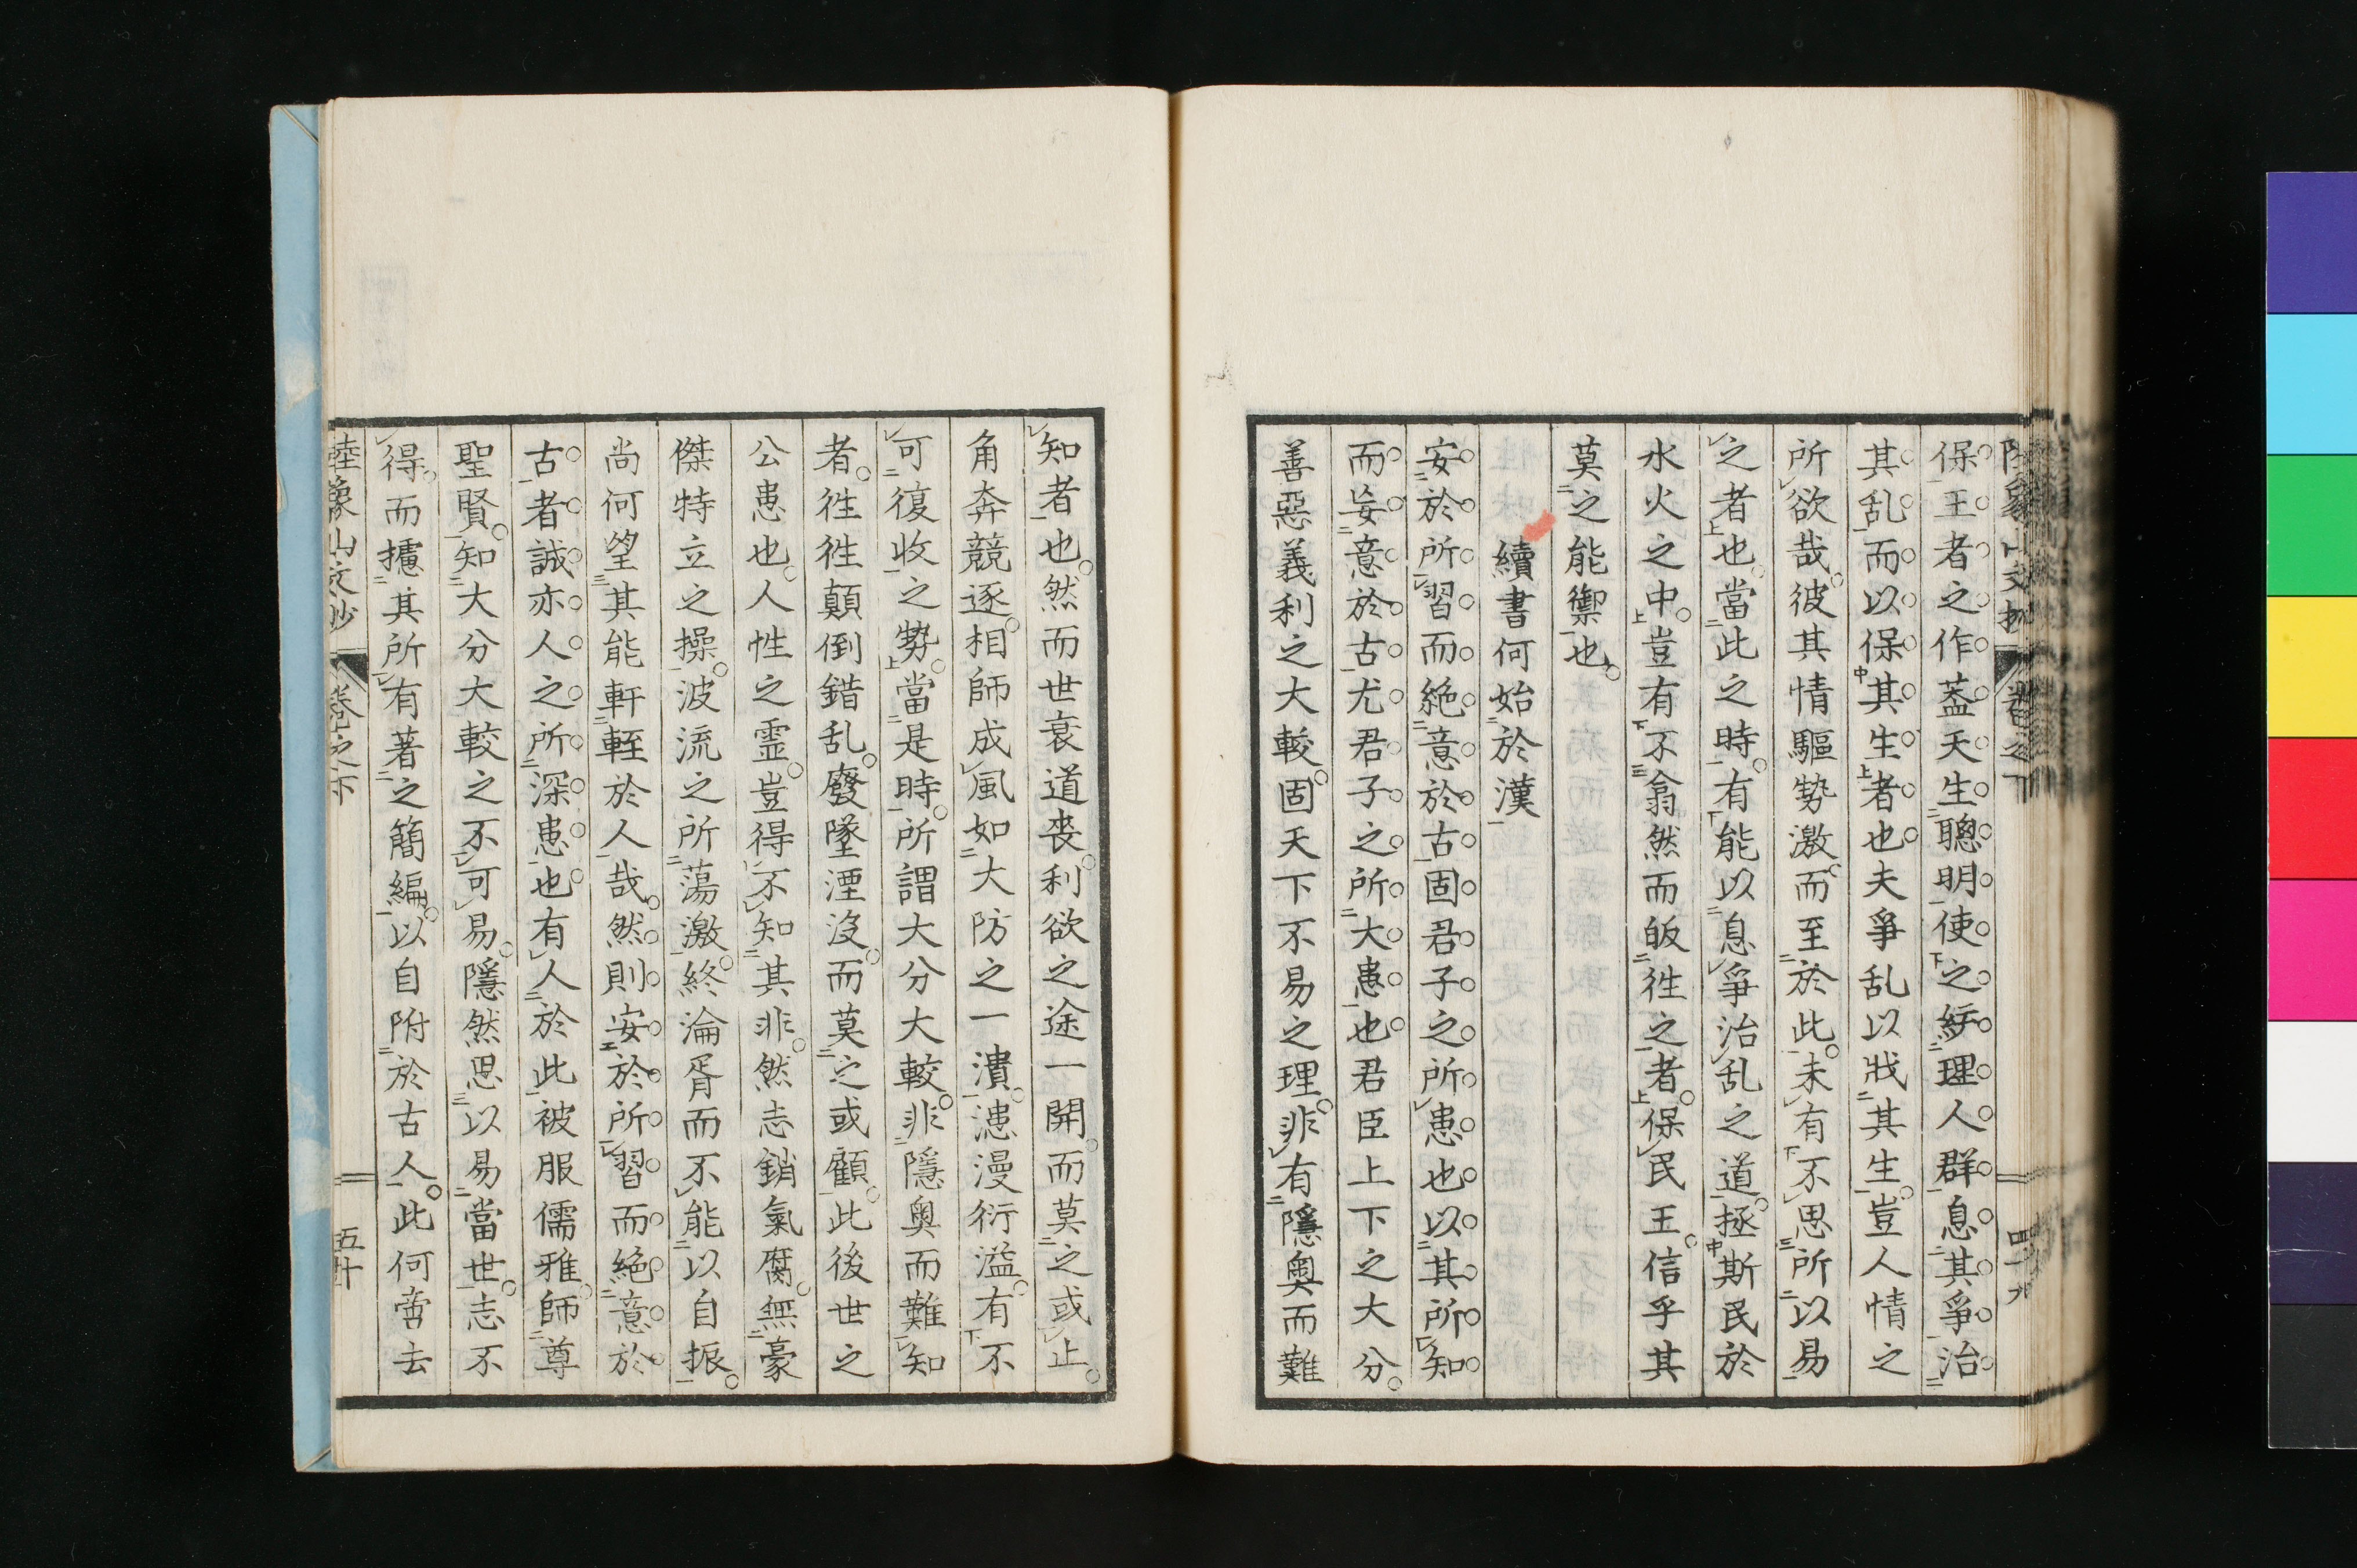 保王者之作蓋天生聰明使之紓理人群息其爭治
其乱而以保其生者也夫爭乱以戕其生豈人情之
所欲哉彼其情驅勢激而至於此未有不思所以易
之者也當此之時有能以息爭治乱之道拯斯民於
水火之中豈有不翕然而皈徃之者保民王信乎其
莫之能禦也
續書何始於漢
安於所習而絶意於古固君子之所患也以其所知
而妄意於古尤君子之所大患也君臣上下之大分
善惡義利之大較固天下不易之理非有隱奧而難
知者也然而世衰道喪利欲之途一開而莫之或止
角奔競逐相師成風如大防之一潰漶漫衍溢有不
可復收之勢當是時所謂大分大較非隱奧而難知
者徃徃顛倒錯乱廢墜湮没而莫之或顧此後世之
公患也人性之霊豈得不知其非然志銷氣腐無豪
傑特立之操波流之所蕩激終淪胥而不能以自振
尚何望其能軒輊於人哉然則安於所習而絶意於
古者誠亦人之所深患也有人於此被服儒雅師尊
聖賢知大分大較之不可易隱然思以易當世志不
得而攄其所有著之簡編以自附於古人此何啻去
陸象山文抄 卷之下 五十